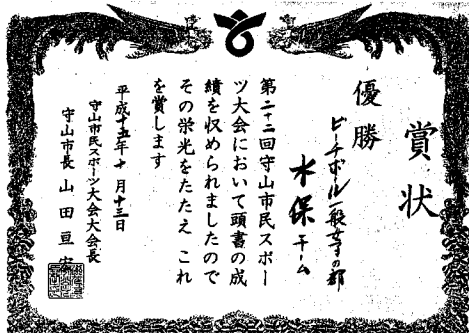 賞状
優勝
ビーチボール一般女子の部
水保チーム
第二十二回守山市民スポー
ツ大会において頭書の成
績を収められましたので
その栄光をたたえ これ
を賞します
平成十五年十月十三日
守山市民スポーツ大会大会長
守山市長 山田亘宏